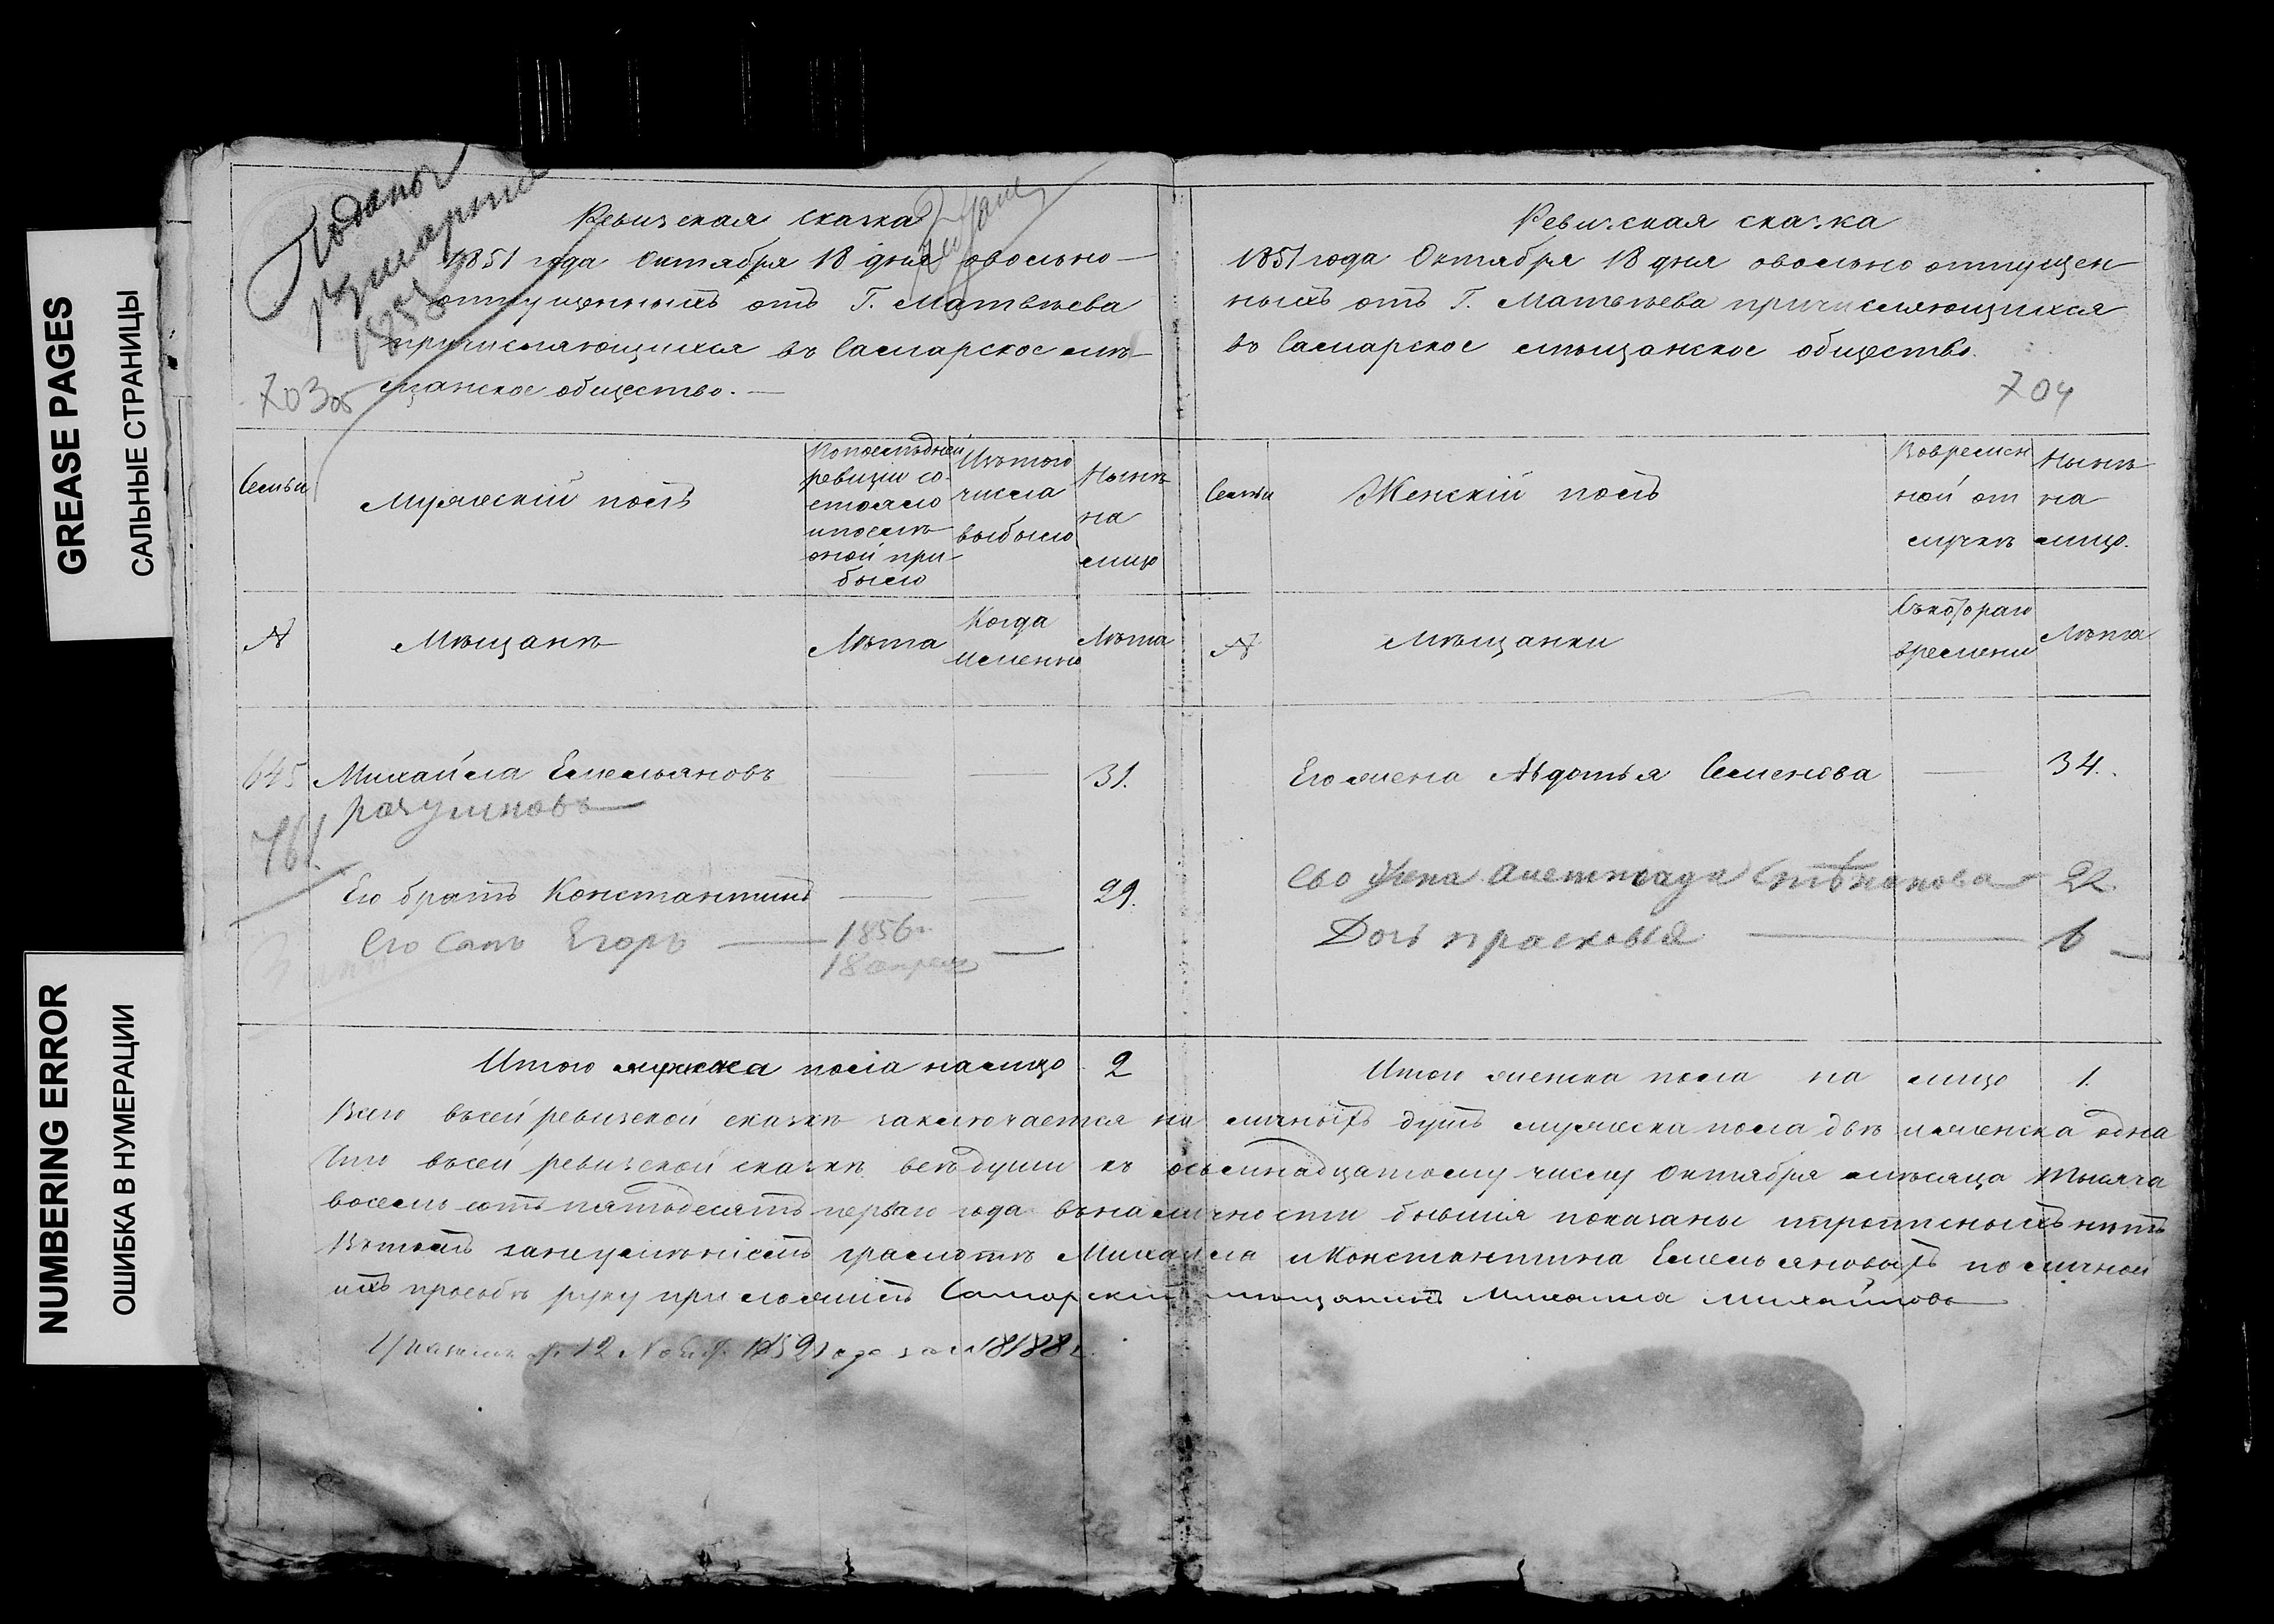 GREASE PAGES
САЛЬНЫЕ СТРАНИЦЫ
NUMBERING ERROR
ОШИБКА В НУМЕРАЦИИ
Подано
7 марта
1858
703 об
Ревизская сказка
1851 года Октября 18 дня овольно-
отпущенныхъ отъ Г. Матвѣева
причисляющихся въ Самарское мѣ-
щанское общество. —
Семьи
Мужескій полъ
По последней
ревизіи со-
стояло
и после
оной при-
было
Изъ того
числа
выбыло
Нынѣ
на
лицо
№
Мѣщанѣ
Лѣта
Когда
именно
Лѣта
645
Михайла Емельяновъ
31.
Разумновъ
761
Его братъ Константинъ
29.
Его Сынъ Егоръ
1856 г.
18 апреля
Итого мужеска пола налицо 2
Ревизская сказка
1851 года Октября 18 дня овольно отпущен
ныхъ отъ Г. Матвѣева причисляющихся
въ Самарское мѣщанское общество.
704
Семьи
Женскій полъ
Вовремен
ной от
лучкѣ
Нынѣ
на
лицо.
№
Мѣщанки
Съкотораго
времени
Лѣта
Его жена Авдотья Семенова
34.
Ево жена Степанова 22.
Дочь прасковья
6
Итого женска пола на лицо 1.
Всего въсей ревизской сказкѣ заключается на личныхъ душъ мужеска пола двѣ и женска одна
Что въсей ревизской сказкѣ всѣ души къ осьмнадцатому числу Октября мѣсяца тысяча
восемь сотъ пятьдесятъ перваго года въналичности бывшія показаны и прописныхъ нѣтъ
Въ томъ занеумѣніемъ грамотѣ Михайла и Константина Емельяновыхъ по личной
ихъ просьбѣ руку приложилъ Самарскій мѣщанинъ Михайла Михайловъ
12 1852 года за № 18188